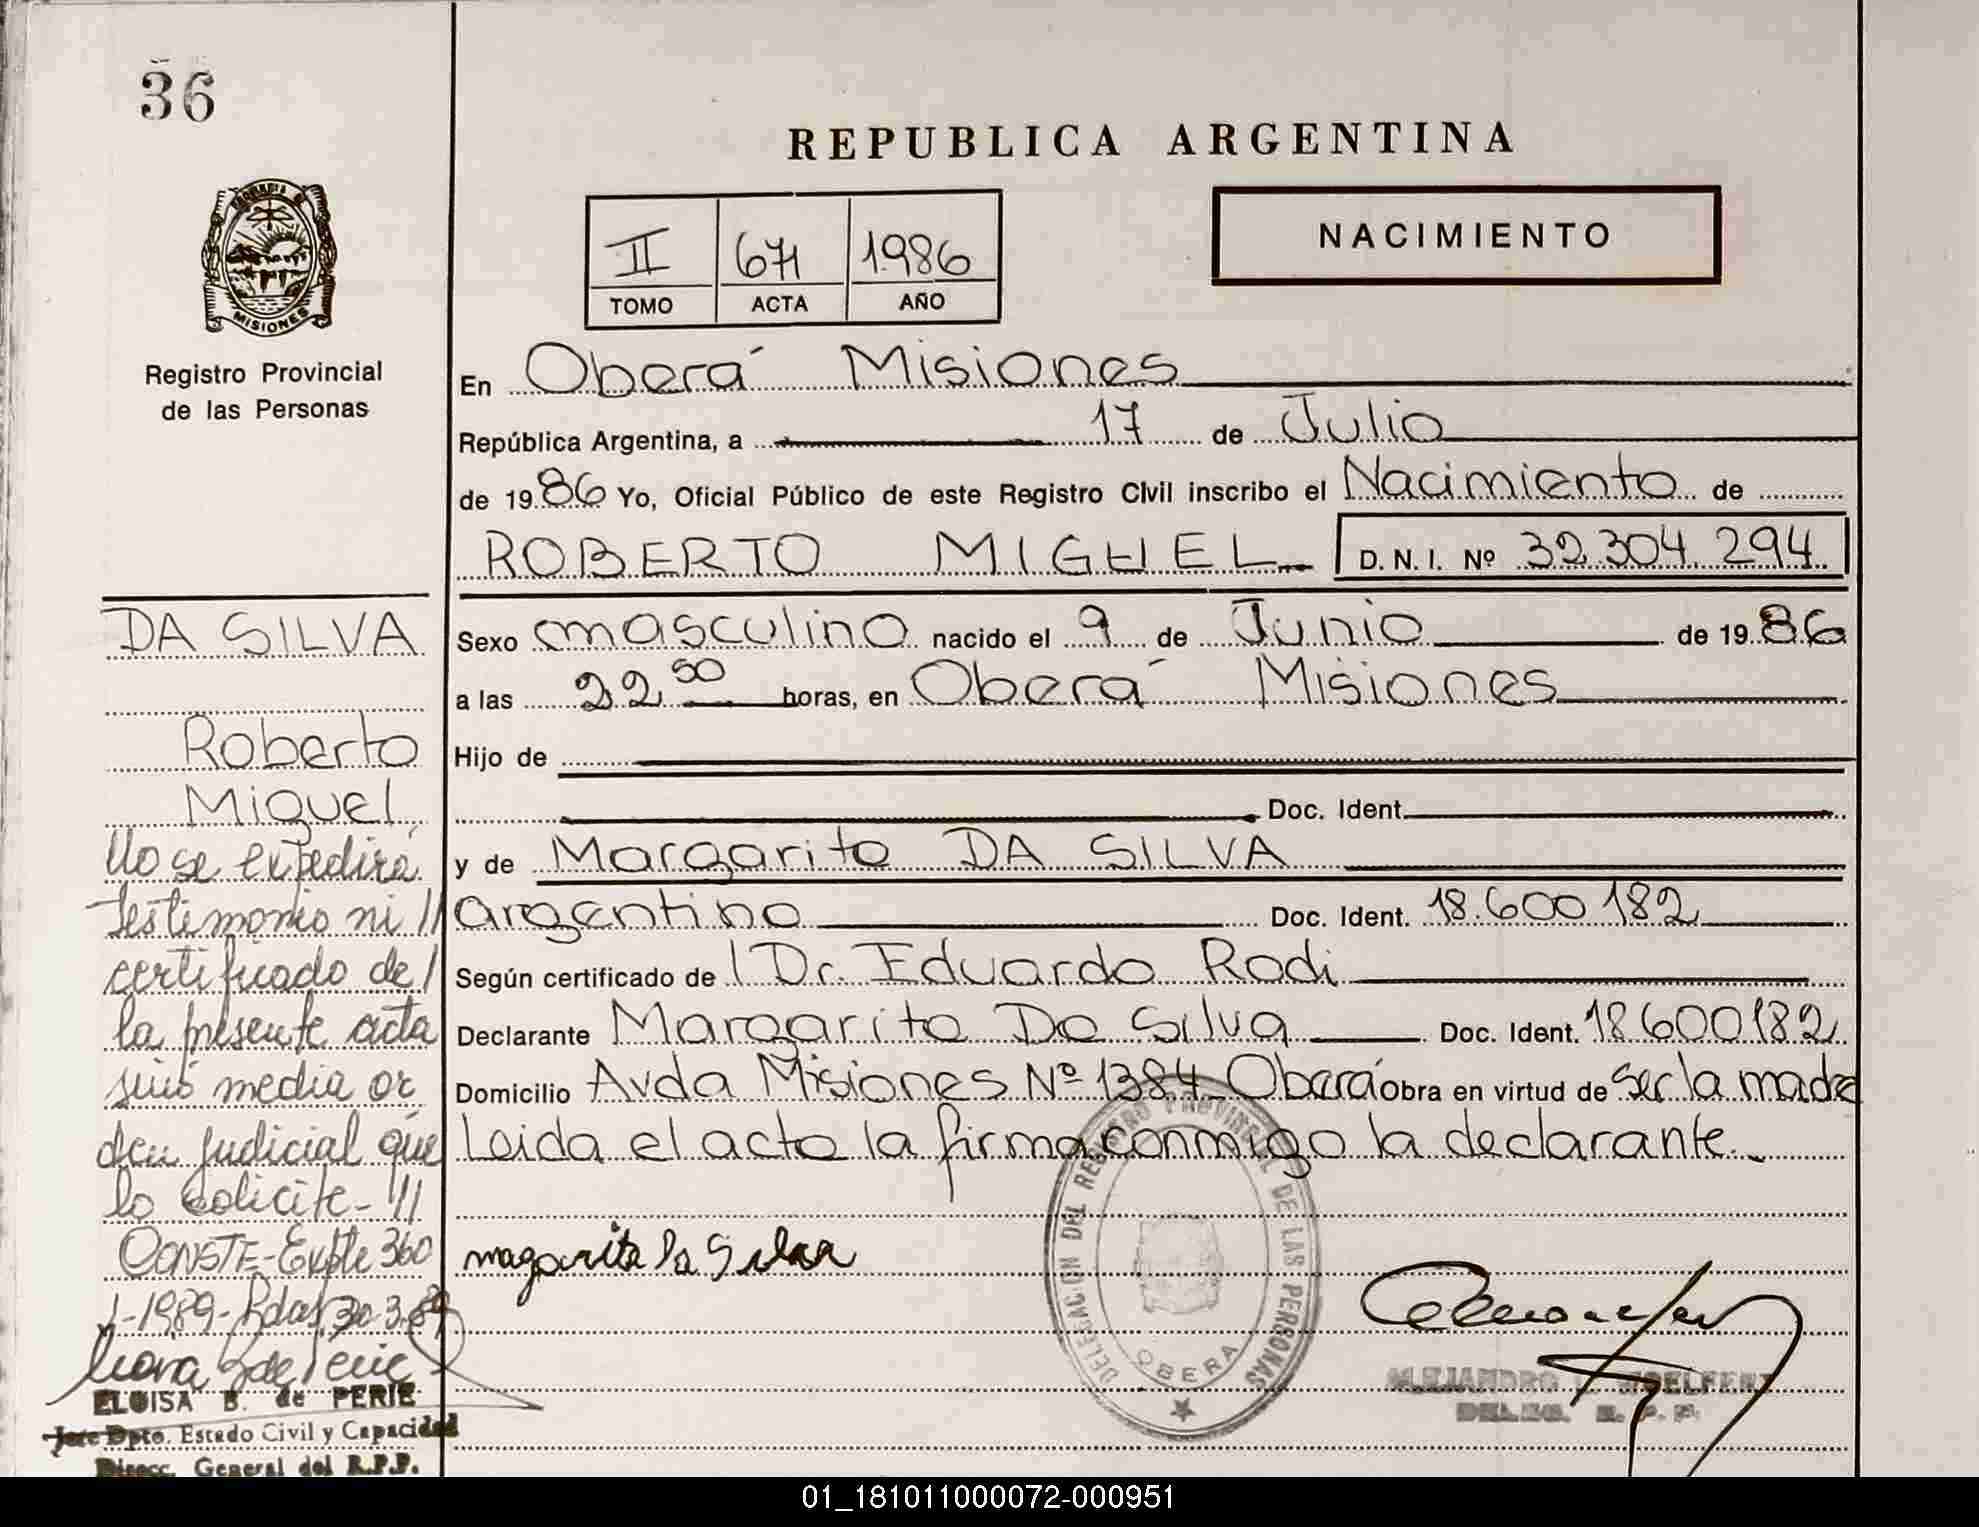 36
REPUBLICA ARGENTINA
NACIMIENTO
II 671 1986
TOMO ACTA AÑO
MISIONES
Registro Provincial
de las Personas
En Oberá Misiones
República Argentina, a 17 de Julio
de 1986 Yo, Oficial Público de este Registro Civil inscribo el Nacimiento de
ROBERTO MIGUEL D. N. I. Nº 32.304.294
Sexo masculino nacido el 9 de Junio de 1986
a las 22 50 horas, en Oberá Misiones
Hijo de
Doc. Ident.
y de Margarita DA SILVA
argentina Doc. Ident. 18.600.182
Según certificado de Dr. Eduardo Rodi
Declarante Margarita Da Silva Doc. Ident. 18.600.182
Domicilio Avda Misiones Nº 1384 Oberá obra en virtud de ser la madre
Leida el acta la firma conmigo la declarante.
DA SILVA
Roberto
Miguel
No se expedirá
testimonio ni //
certificado de /
la presente acta
sinó media or
den judicial que
lo solicite- //
CONSTE-Expte 360
1-1989- Pdas 30.3.89
ELOISA B. de PERIE
Jefe Dpto. Estado Civil y Capacidad
Direcc. General del R.P.P.
magarita Da Silva
DELEGACION DEL REGISTRO PROVINCIAL DE LAS PERSONAS
OBERA
ALEJANDRO
01_181011000072-000951